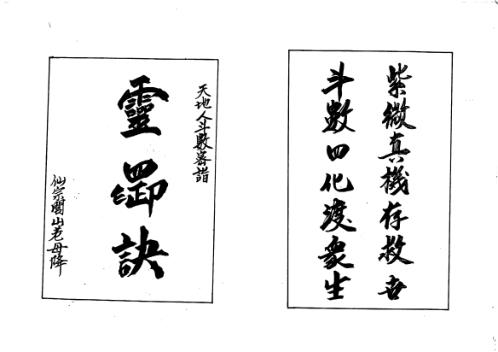 紫微真機存救世
斗數四化渡眾生
天地人斗數密
靈訣
仙宗閭山老母降